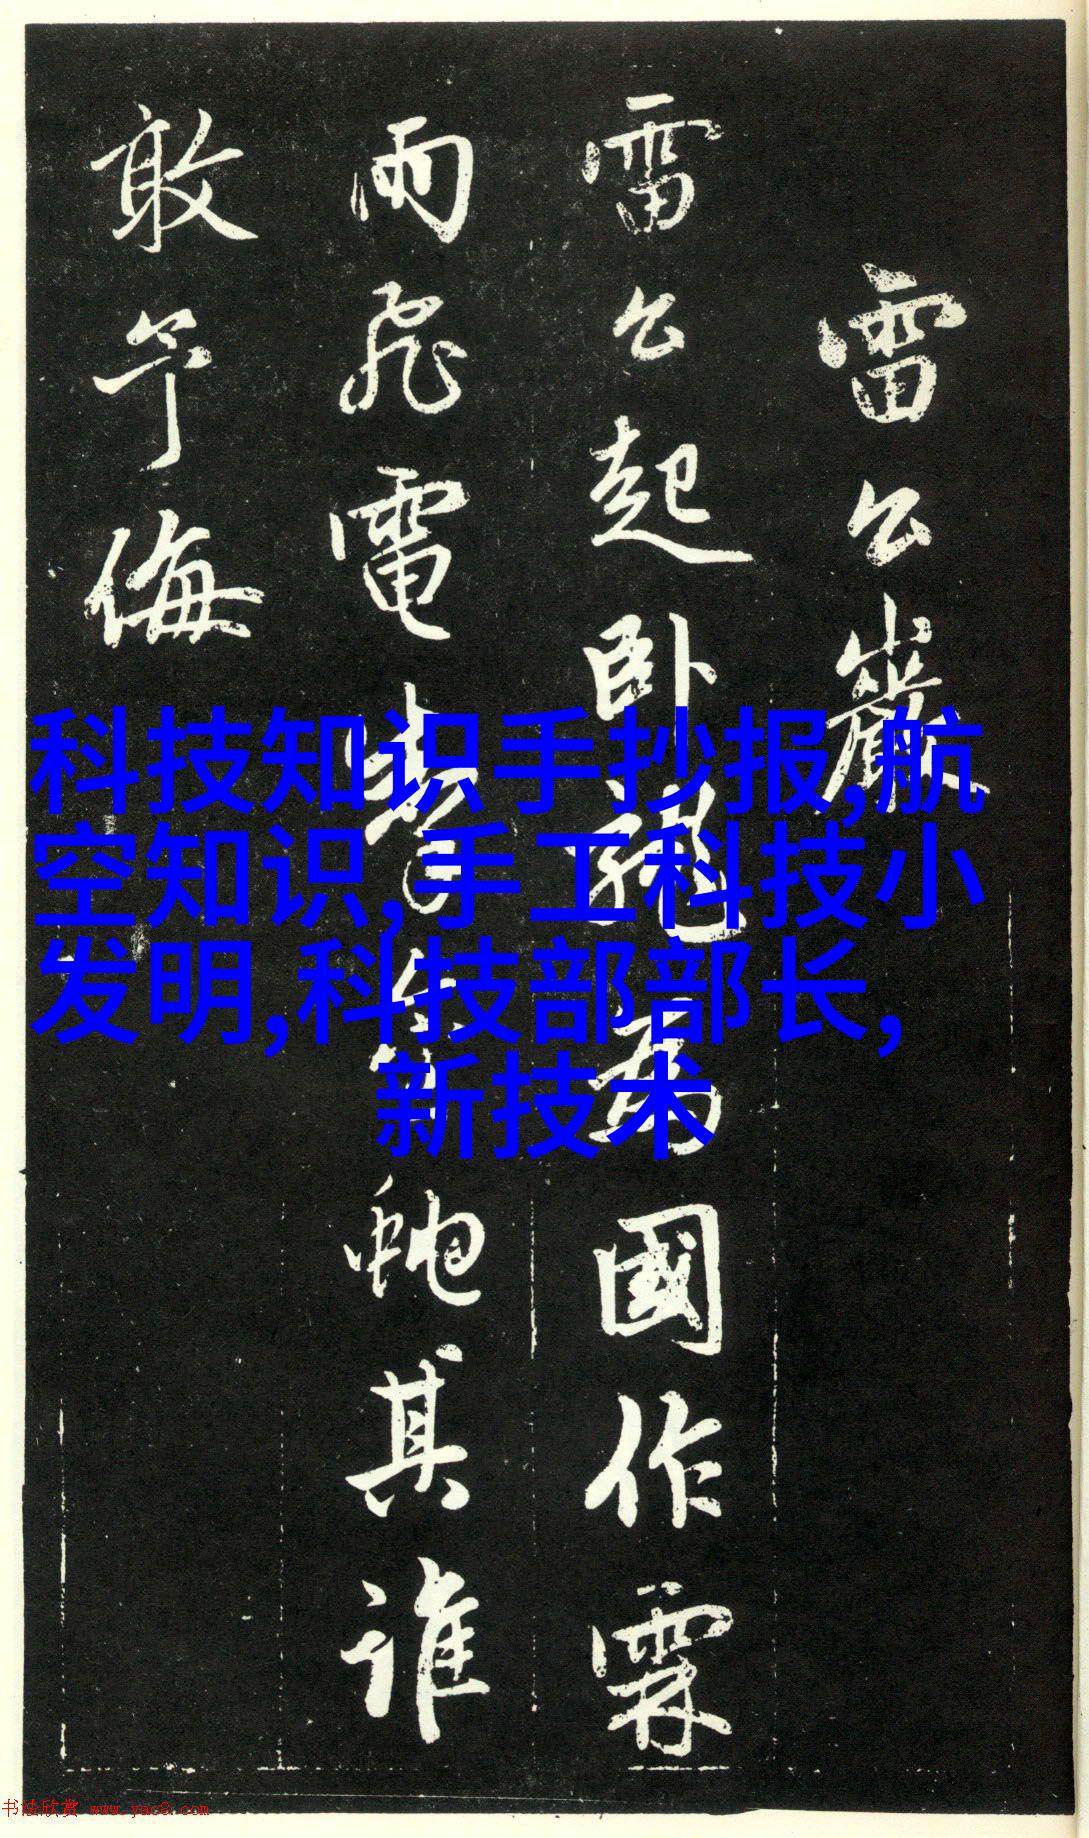 雷公巖
雷公起卧龍為國作霖
雨飛電掣金蛇其誰
敢予侮
科技知识手抄报,航
空知识,手工科技小
发明,科技部部长,
新技术
书法欣赏 www.yac8.com